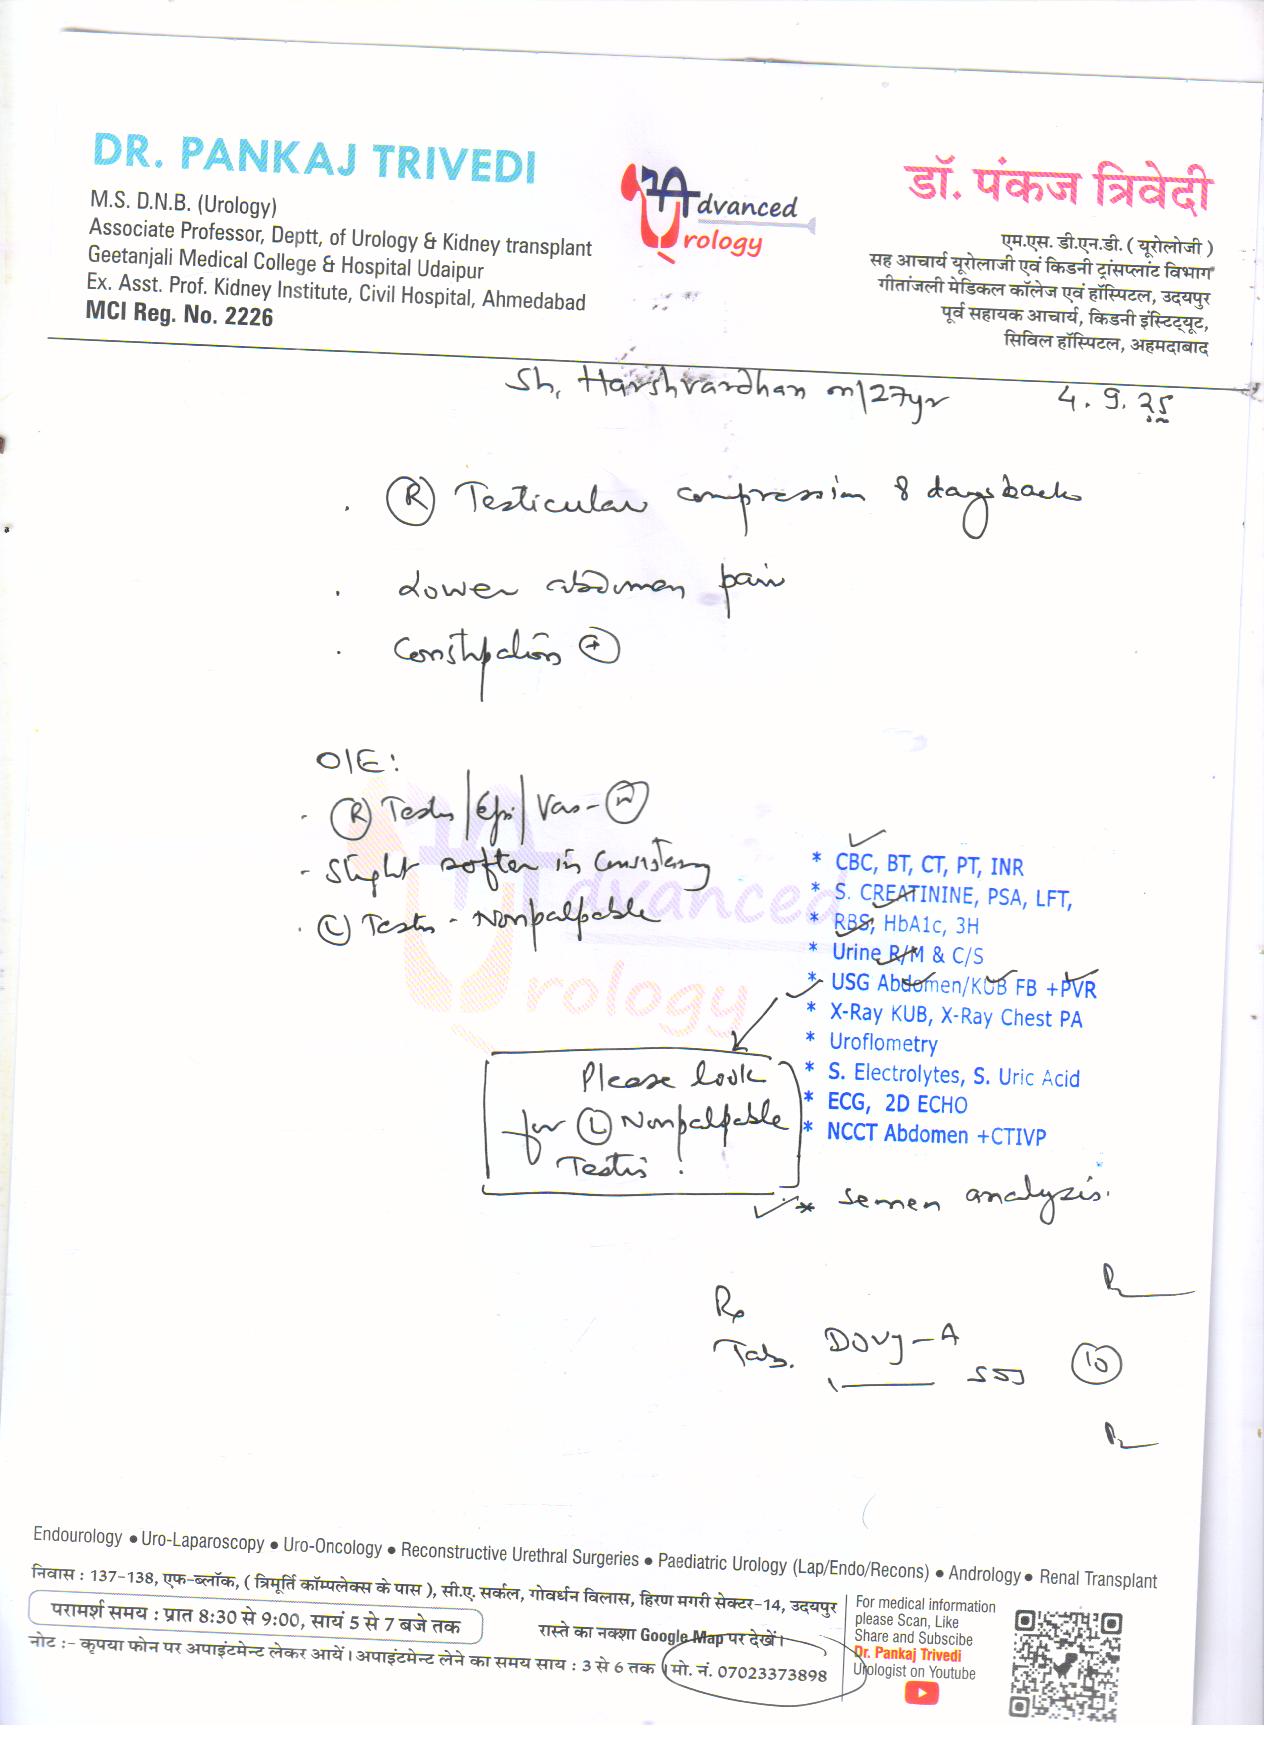 DR. PANKAJ TRIVEDI
M.S. D.N.B. (Urology)
Associate Professor, Deptt, of Urology & Kidney transplant
Geetanjali Medical College & Hospital Udaipur
Ex. Asst. Prof. Kidney Institute, Civil Hospital, Ahmedabad
MCI Reg. No. 2226
Advanced
Urology
डॉ. पंकज त्रिवेदी
एम.एस. डी.एन.डी. ( यूरोलोजी )
सह आचार्य यूरोलाजी एवं किडनी ट्रांसप्लांट विभाग
गीतांजली मेडिकल कॉलेज एवं हॉस्पिटल, उदयपुर
पूर्व सहायक आचार्य, किडनी इंस्टिट्यूट,
सिविल हॉस्पिटल, अहमदाबाद
Sh. Harshvardhan m/27yr 4.9.25
. (R) Testicular compression 8 days back
. Lower abdomen pain
. Constipation (+)
O/E:
. (R) Testis/Epi/Vas - (N)
- Slight softer in Consistency
. (L) Testis - Nonpalpable
Advanced
Urology
* CBC, BT, CT, PT, INR
* S. CREATININE, PSA, LFT,
* RBS, HbA1c, 3H
* Urine R/M & C/S
* USG Abdomen/KUB FB +PVR
* X-Ray KUB, X-Ray Chest PA
* Uroflometry
* S. Electrolytes, S. Uric Acid
* ECG, 2D ECHO
* NCCT Abdomen +CTIVP
Please look
for (L) Nonpalpable
Testis !
* Semen analysis.
Rx
Tab. DOVJ-A
1 SOS (10)
Endourology • Uro-Laparoscopy • Uro-Oncology • Reconstructive Urethral Surgeries • Paediatric Urology (Lap/Endo/Recons) • Andrology • Renal Transplant
निवास : 137-138, एफ-ब्लॉक, ( त्रिमूर्ति कॉम्पलेक्स के पास ), सी.ए. सर्कल, गोवर्धन विलास, हिरण मगरी सेक्टर-14, उदयपुर
परामर्श समय : प्रात 8:30 से 9:00, सायं 5 से 7 बजे तक
रास्ते का नक्शा Google Map पर देखें।
नोट :- कृपया फोन पर अपाइंटमेन्ट लेकर आयें। अपाइंटमेन्ट लेने का समय साय : 3 से 6 तक । मो. नं. 07023373898
For medical information
please Scan, Like
Share and Subscibe
Dr. Pankaj Trivedi
Urologist on Youtube